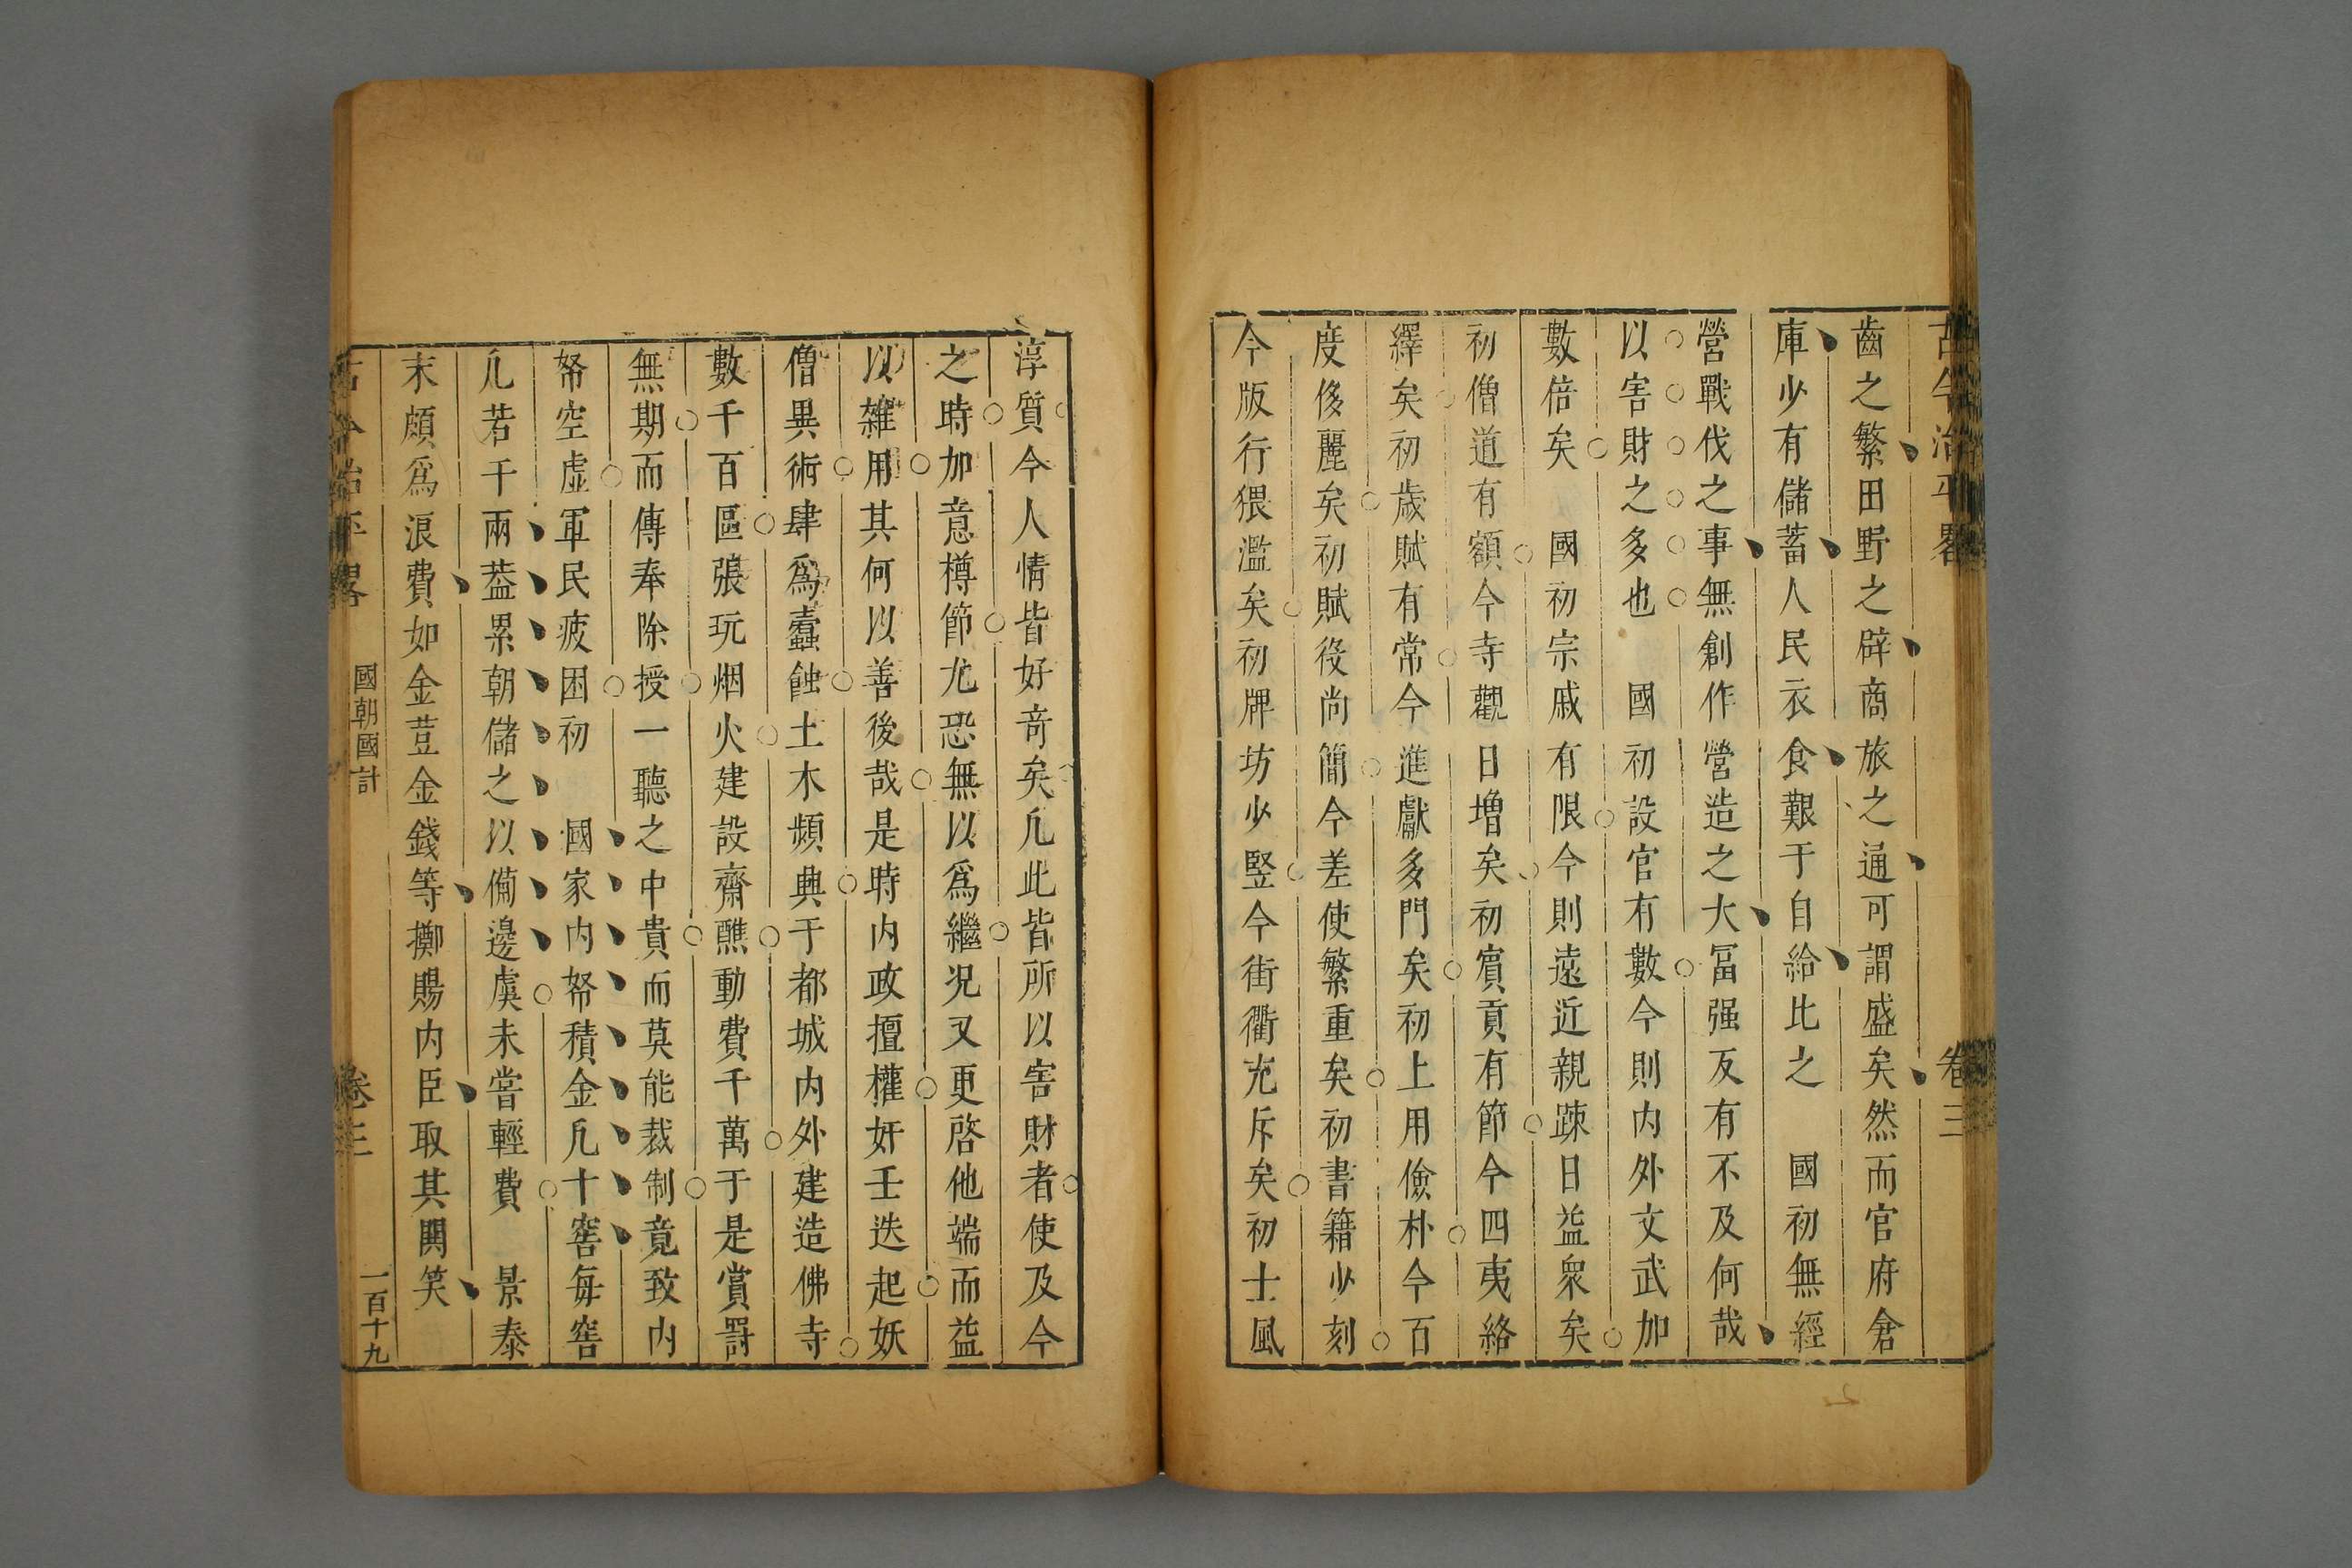 古今治平畧
卷三
齒之繁田野之辟商旅之通可謂盛矣然而官府倉
庫少有儲蓄人民衣食艱于自給比之　國初無經
營戰伐之事無創作營造之大冨强反有不及何哉
以害財之多也　國初設官有數今則内外文武加
數倍矣　國初宗戚有限今則遠近親踈日益衆矣
初僧道有額今寺觀日增矣初賔貢有節今四夷絡
繹矣初歲賦有常今進獻多門矣初上用儉朴今百
度侈麗矣初賦役尚簡今差使繁重矣初書籍少刻
今版行猥濫矣初牌坊少竪今街衢充斥矣初士風
淳質今人情皆好竒矣凢此皆所以害財者使及今
之時加意樽節尤恐無以爲繼况又更啓他端而益
以雜用其何以善後哉是時内政擅權奸壬迭起妖
僧異術肆爲蠹蝕土木頻興于都城内外建造佛寺
數千百區張玩烟火建設齋醮動費千萬于是賞罸
無期而傳奉除授一聽之中貴而莫能裁制竟致内
帑空虛軍民疲困初　國家内帑積金凢十窖每窖
凢若干兩葢累朝儲之以備邊虞未甞輕費　景泰
末頗爲浪費如金荳金錢等擲賜内臣取其鬨笑
古今治平畧
國朝國計
卷三
一百十九